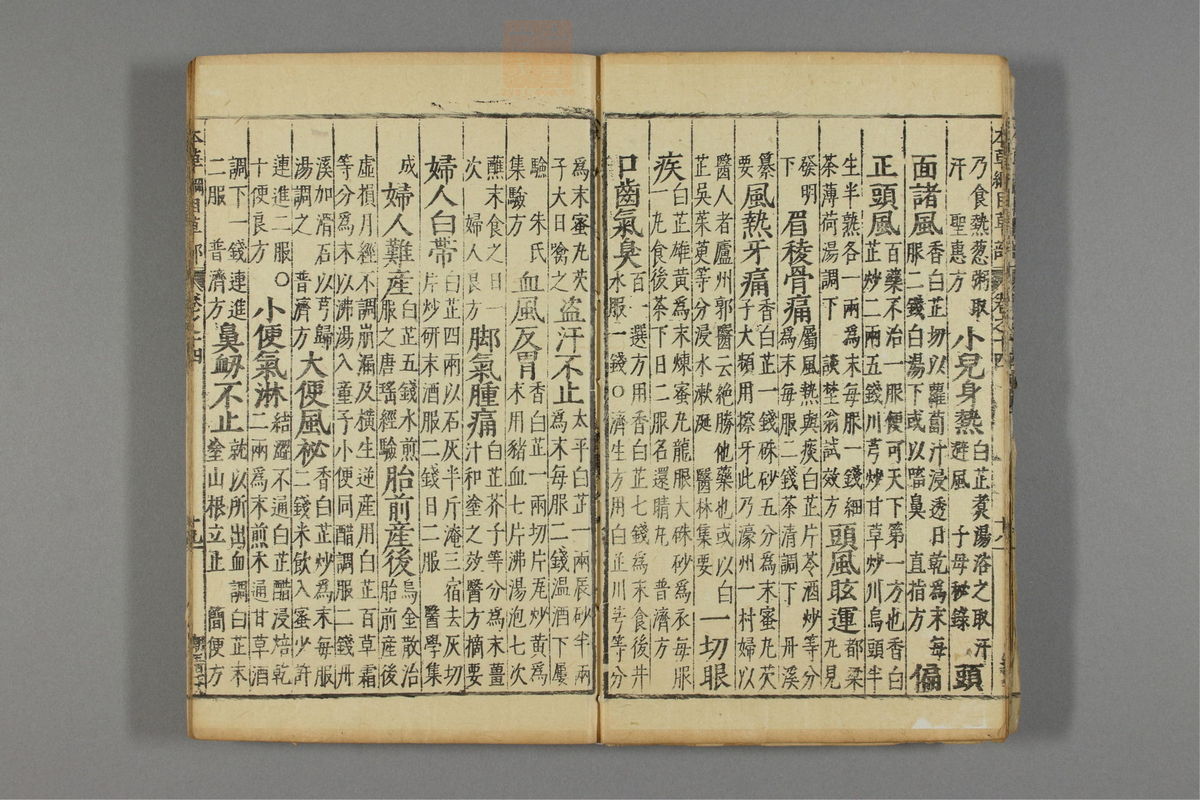 本草綱目草部　卷之十四　十八
乃食熱葱粥取
汗　聖惠方
小兒身熱
白芷煮湯浴之取汗
避風　子母秘錄
頭
面諸風
香白芷切以蘿蔔汁浸透日乾爲末每
服二錢白湯下或以㗜鼻　直指方
偏
正頭風
百藥不治一服便可天下第一方也香白
芷炒二兩五錢川芎炒甘草炒川烏頭半
生半熟各一兩爲末每服一錢細
茶薄荷湯調下　談埜翁試效方
頭風眩運
都梁
丸見
發明
下
眉稜骨痛
屬風熱與痰白芷片芩酒炒等分
爲末每服二錢茶清調下　丹溪
纂
要
風熱牙痛
香白芷一錢硃砂五分爲末蜜丸芡
子大頻用擦牙此乃濠州一村婦以
醫人者廬州郭醫云絶勝他藥也或以白
芷吳茱萸等分浸水漱涎　醫林集要
一切眼
疾
白芷雄黃爲末煉蜜丸龍眼大硃砂爲衣每服
一丸食後茶下日二服名還睛丸　普濟方
口齒氣臭
百一選方用香白芷七錢爲末食後井
水服一錢○濟生方用白芷川芎等分
爲末蜜丸芡
子大日噙之
盗汗不止
太平白芷一兩辰砂半兩
爲末每服二錢温酒下屢
驗　朱氏
集驗方
血風反胃
香白芷一兩切片瓦炒黃爲
末用豬血七片沸湯泡七次
蘸末食之日一
次　婦人良方
脚氣腫痛
白芷芥子等分爲末薑
汁和塗之效醫方摘要
婦人白帶
白芷四兩以石灰半斤淹三宿去灰切
片炒研末酒服二錢日二服　醫學集
成
婦人難產
白芷五錢水煎
服之唐瑤經驗
胎前產後
烏金散治
胎前產後
虛損月經不調崩漏及橫生逆產用白芷百草霜
等分爲末以沸湯入童子小便同醋調服二錢丹
溪加滑石以芎歸
湯調之　普濟方
大便風祕
香白芷炒爲末每服
二錢米飲入蜜少許
連進二服○
十便良方
小便氣淋
結澀不通白芷醋浸焙乾
二兩爲末煎木通甘草酒
調下一錢連進
二服　普濟方
鼻衂不止
就以所出血調白芷末
塗山根立止　簡便方
本草綱目草部　卷之十四